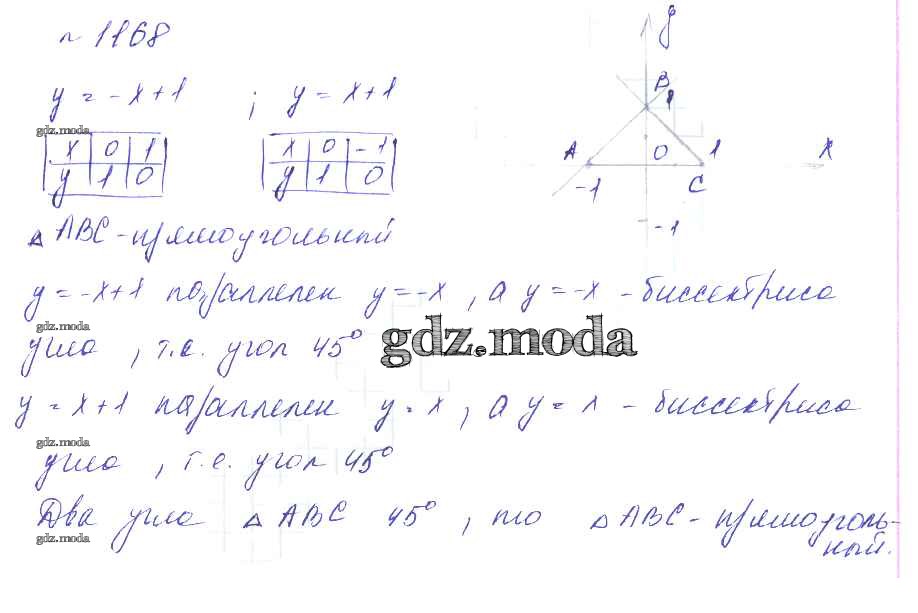 № 1168
y = -x+1 ; y = x+1
gdz.moda
x 0 1
y 1 0
x 0 -1
y 1 0
y
B
1
A 0 1 x
-1 C
-1
△ ABC - прямоугольный
y = -x+1 параллелен y = -x, а y = -x - биссектриса
gdz.moda
угла, т.е. угол 45°
gdz.moda
y = x+1 параллелен y = x, а y = x - биссектриса
gdz.moda
угла, т.е. угол 45°
Два угла △ ABC 45°, то △ ABC - прямоуголь-
gdz.moda
ный.